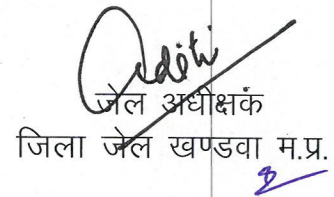 Aditi
जेल अधीक्षक
जिला जेल खण्डवा म.प्र.